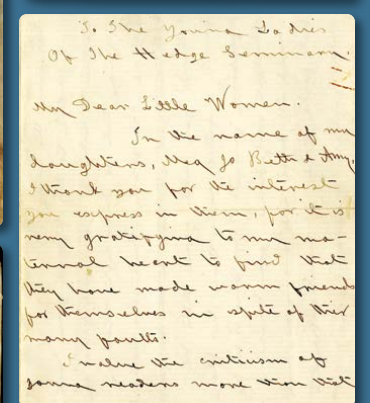 To The Young Ladies
Of The Hedge Seminary.
My Dear Little Women.
In the name of my
daughters, Meg Jo Beth & Amy,
I thank you for the interest
you express in them, for it is
very gratifying to my ma-
ternal heart to find that
they have made warm friends
for themselves in spite of their
many faults.
I value the criticism of
young readers more than that